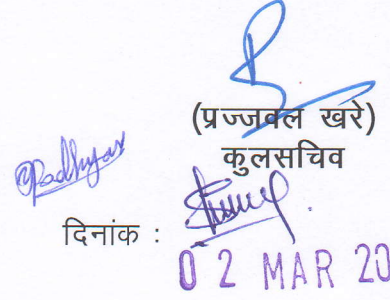 (प्रज्जवल खरे)
कुलसचिव
दिनांक :
0 2 MAR 20